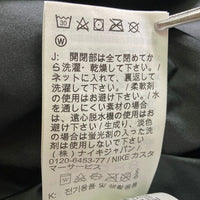 30
W
J: 開閉部は全て閉めてか
ら洗濯・乾燥して下さい。/
ネットに入れて、裏返して
洗濯して下さい。/柔軟剤
の使用はお避け下さい。/水
を通しにくい素材の場合
は、遠心脱水機のご使用は
お避け下さい。/淡色の場
合は蛍光剤の入った洗剤
は使用しないで下さい。
(株)ナイキジャパン/
0120-6453-77/NIKE カスタ
マーサービス
K: